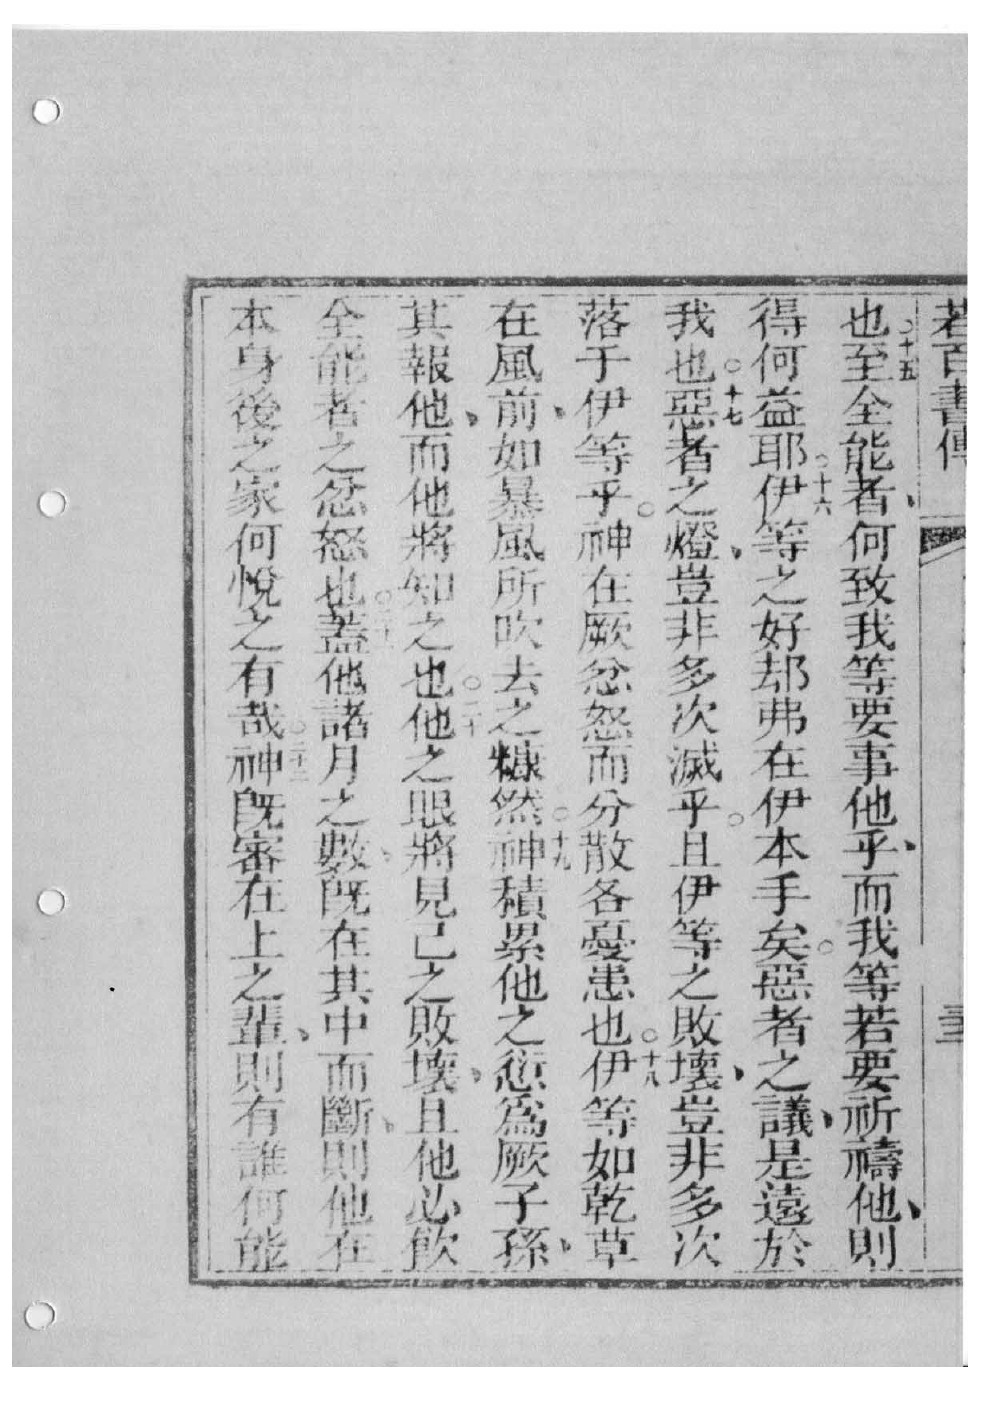 若百書傳 三
也○十五至全能者、何致我等要事他乎、而我等若要祈禱他、則
得何益耶○十六伊等之好却弗在伊本手矣○惡者之議、是遠於
我也○十七惡者之燈、豈非多次滅乎○且伊等之敗壞、豈非多次
落于伊等乎○神在厥忿怒而分散各憂患也○十八伊等如乾草
在風前、如暴風所吹去之糠然○十九神積累他之愆爲厥子孫、
其報他、而他將知之也○二十他之眼將見己之敗壞、且他必飲
全能者之忿怒也○二十一蓋他諸月之數、既在其中而斷、則他在
本身後之家何悅之有哉○二十二神既審在上之輩、則有誰何能